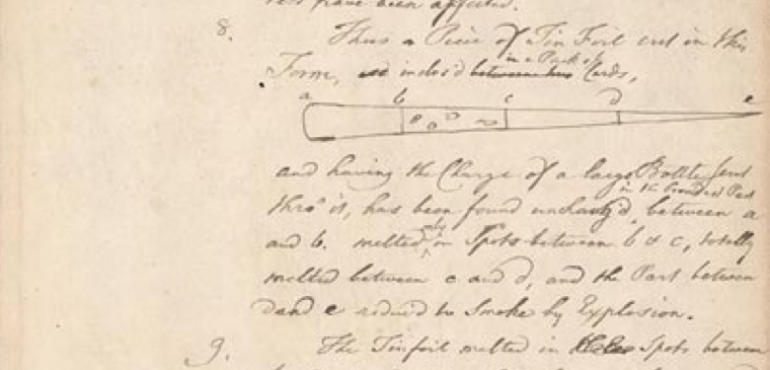 have been affected.
8. Thus a Piece of Tin Foil cut in this
in a Pack of
Form, inclos'd between two Cards,
a b c d e
and having the Charge of a large Bottle sent
in the broadest Part
thro' it, has been found unchang'd, between a
only
and b. melted in Spots between b & c, totally
melted between c and d, and the Part between
d and e reduc'd to Smoke by Explosion.
9. The Tinfoil melted in Spots between